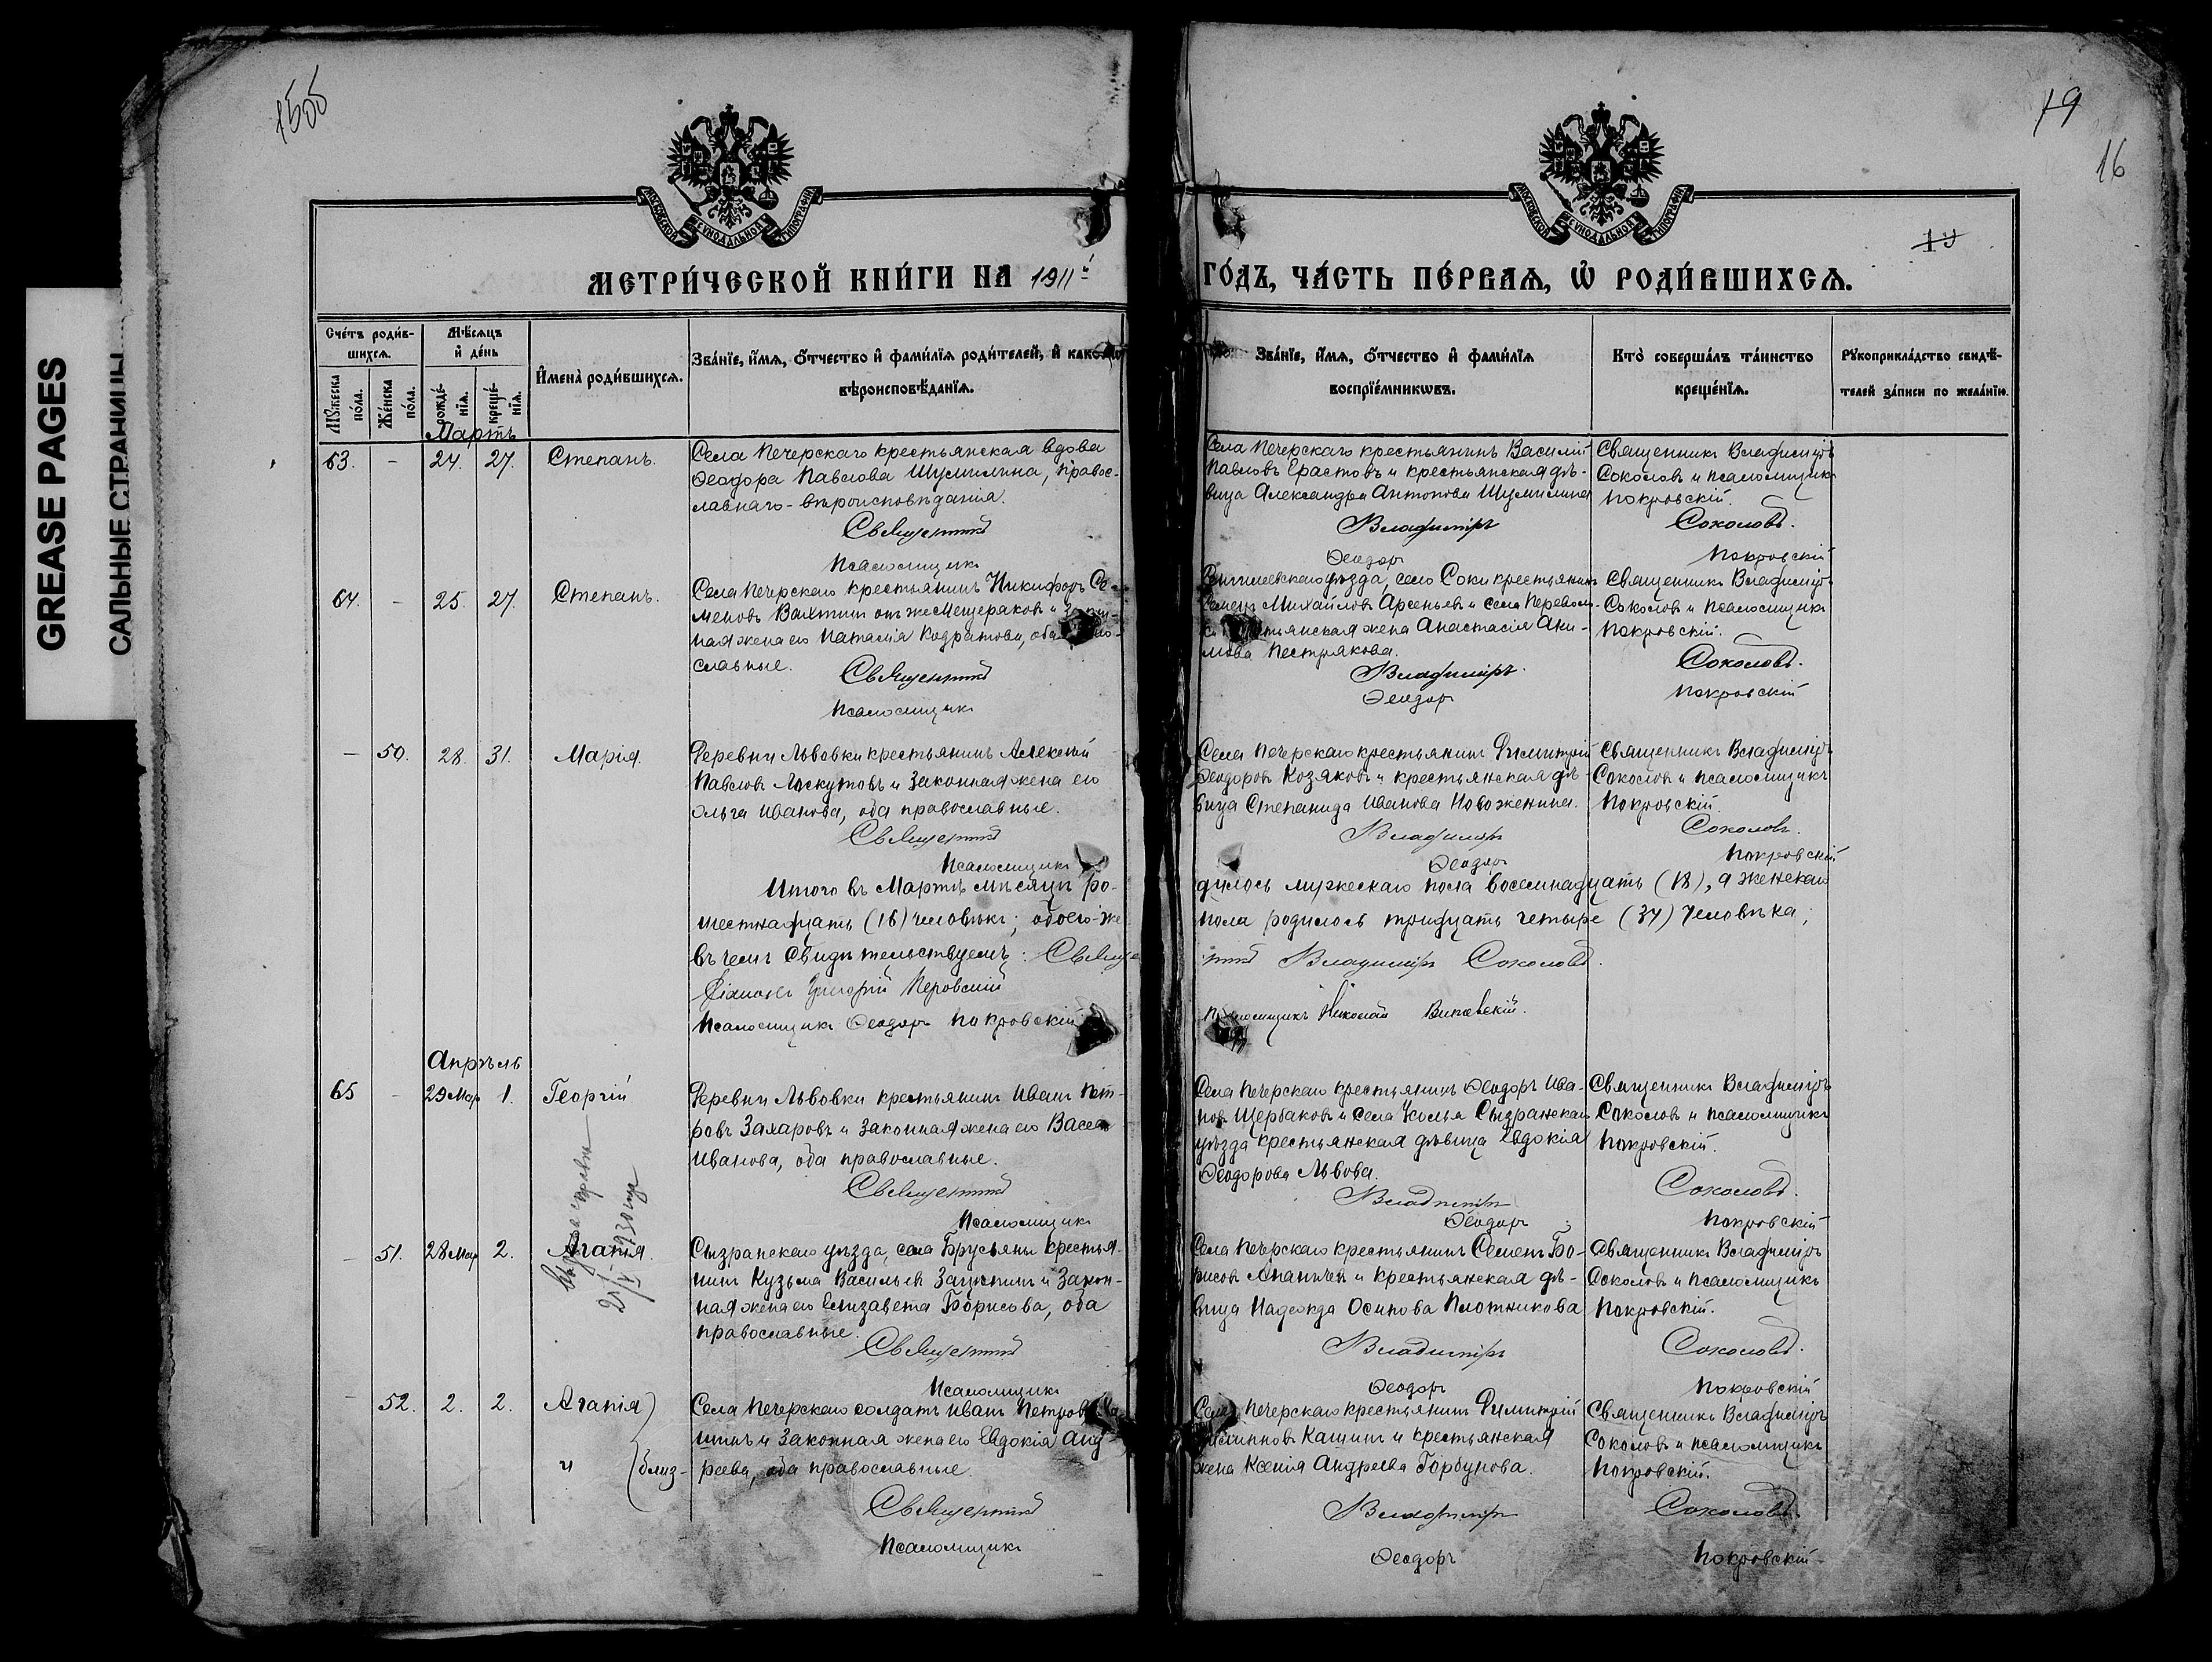 GREASE PAGES
САЛЬНЫЕ СТРАНИЦЫ
1555
19
16
МОСКОВСКОЙ СѴНОДАЛЬНОЙ ТИПОГРАФІИ
МОСКОВСКОЙ СѴНОДАЛЬНОЙ ТИПОГРАФІИ
МЕТРИ́ЧЕСКОЙ КНИ́ГИ НА 1911й
ГО́ДЪ, ЧА́СТЬ ПЕ́РВАѦ, Ѡ҆ РОДИ́ВШИХСѦ.
Сче́тъ роди́в-
шихсѧ.
Мꙋжеска
по́ла.
Же́нска
по́ла.
Мѣ́сѧцъ
и҆ де́нь
рожде́-
нїѧ.
креще́-
нїѧ.
И҆мена̀ роди́вшихсѧ.
Зва́нїе, и҆́мѧ, ѻ҆́тчество и҆ фами́лїѧ роди́телей, и҆ како́гѡ
вѣроисповѣ́данїѧ.
Зва́нїе, и҆́мѧ, ѻ҆́тчество и҆ фами́лїѧ
воспрїе́мникѡвъ.
Кто̀ соверша́лъ та́инство
креще́нїѧ.
Рꙋкоприкла́дство свидѣ́-
телей за́писи по жела́нїю.
Мартъ
63. - 24. 27. Степанъ.
Села Печерскаго крестьянская вдова
Ѳеодора Павлова Шумилина, правос-
лавнаго-вѣроисповѣданія.
Священникъ
Псаломщикъ
Села Печерскаго крестьянинъ Василій
Павловъ Ерастовъ и крестьянская дѣ-
вица Александра Антонова Шумилина
Владиміръ
Ѳеодоръ
Священникъ Владиміръ
Соколовъ и псаломщикъ
Покровскій.
Соколовъ.
Покровскій
64. - 25. 27. Степанъ.
Села Печерскаго крестьянинъ Никифоръ Се-
меновъ Вахтинъ онъ же Мещеряковъ и
ная жена его Наталія Кодратова, оба
славные.
Священникъ
Псаломщикъ
Сенгилеевскаго уѣзда, село Соки крестьянинъ
Семенъ Михайловъ Арсеньевъ и села Переволо-
жена Анастасія Аки-
мова Пестрякова.
Владиміръ.
Ѳеодоръ
Священникъ Владиміръ
Соколовъ и псаломщикъ
Покровскій.
Соколовъ.
Покровскій
- 50. 28. 31. Марія.
Деревни Львовки крестьянинъ Алексѣй
Павловъ Лоскутовъ и законная жена его
Ольга Иванова, оба православные.
Священникъ
Псаломщикъ
Села Печерскаго крестьянинъ Димитрій
Ѳеодоровъ Козяковъ и крестьянская дѣ-
вица Степанида Иванова Новоженина.
Владиміръ
Ѳеодоръ
Священникъ Владиміръ
Соколовъ и псаломщикъ
Покровскій.
Соколовъ.
Покровскій
Итого въ Мартѣ мѣсяцѣ ро-
дилось мужескаго пола восемнадцать (18), а женскаго
шестнадцать (16) человѣкъ; обоего-же
пола родилось тридцать четыре (34) человѣка;
въ чемъ свидѣтельствуемъ: Священ
никъ Владиміръ Соколовъ.
Діаконъ Григорій Перовскій
Псаломщикъ Ѳеодоръ Покровскій
Псаломщикъ Николай
Апрѣль
65 - 29 Мар 1. Георгій
Деревни Львовки крестьянинъ Иванъ Пет-
ровъ Захаровъ и законная жена его Васса
Иванова, оба православные.
Священникъ
Псаломщикъ
Села Печерскаго крестьянинъ Ѳеодоръ Ива-
новъ Щербаковъ и села Усолья Сызранскаго
уѣзда крестьянская дѣвица Евдокія
Ѳеодорова Львова.
Владиміръ
Ѳеодоръ
Священникъ Владиміръ
Соколовъ и псаломщикъ
Покровскій.
Соколовъ.
Покровскій
- 51. 28 Мар 2. Агапія.
Сызранскаго уѣзда, села Брусяны крестья-
нинъ Кузьма Васильевъ и закон-
ная жена его Елизавета Борисова, оба
православные.
Священникъ
Псаломщикъ
Села Печерскаго крестьянинъ Семенъ Бо-
рисовъ Ананьевъ и крестьянская дѣ-
вица Надежда Осипова Плотникова
Владиміръ
Ѳеодоръ
Священникъ Владиміръ
Соколовъ и псаломщикъ
Покровскій.
Соколовъ.
Покровскій
- 52. 2. 2. Агапія
и (близ-
Села Печерскаго солдатъ Иванъ Петровъ
и законная жена его Евдокія Анд-
реева, оба православные.
Священникъ
Псаломщикъ
Села Печерскаго крестьянинъ Димитрій
Кашинъ и крестьянская
жена Ксенія Андреева Горбунова.
Владиміръ
Ѳеодоръ
Священникъ Владиміръ
Соколовъ и псаломщикъ
Покровскій.
Соколовъ.
Покровскій